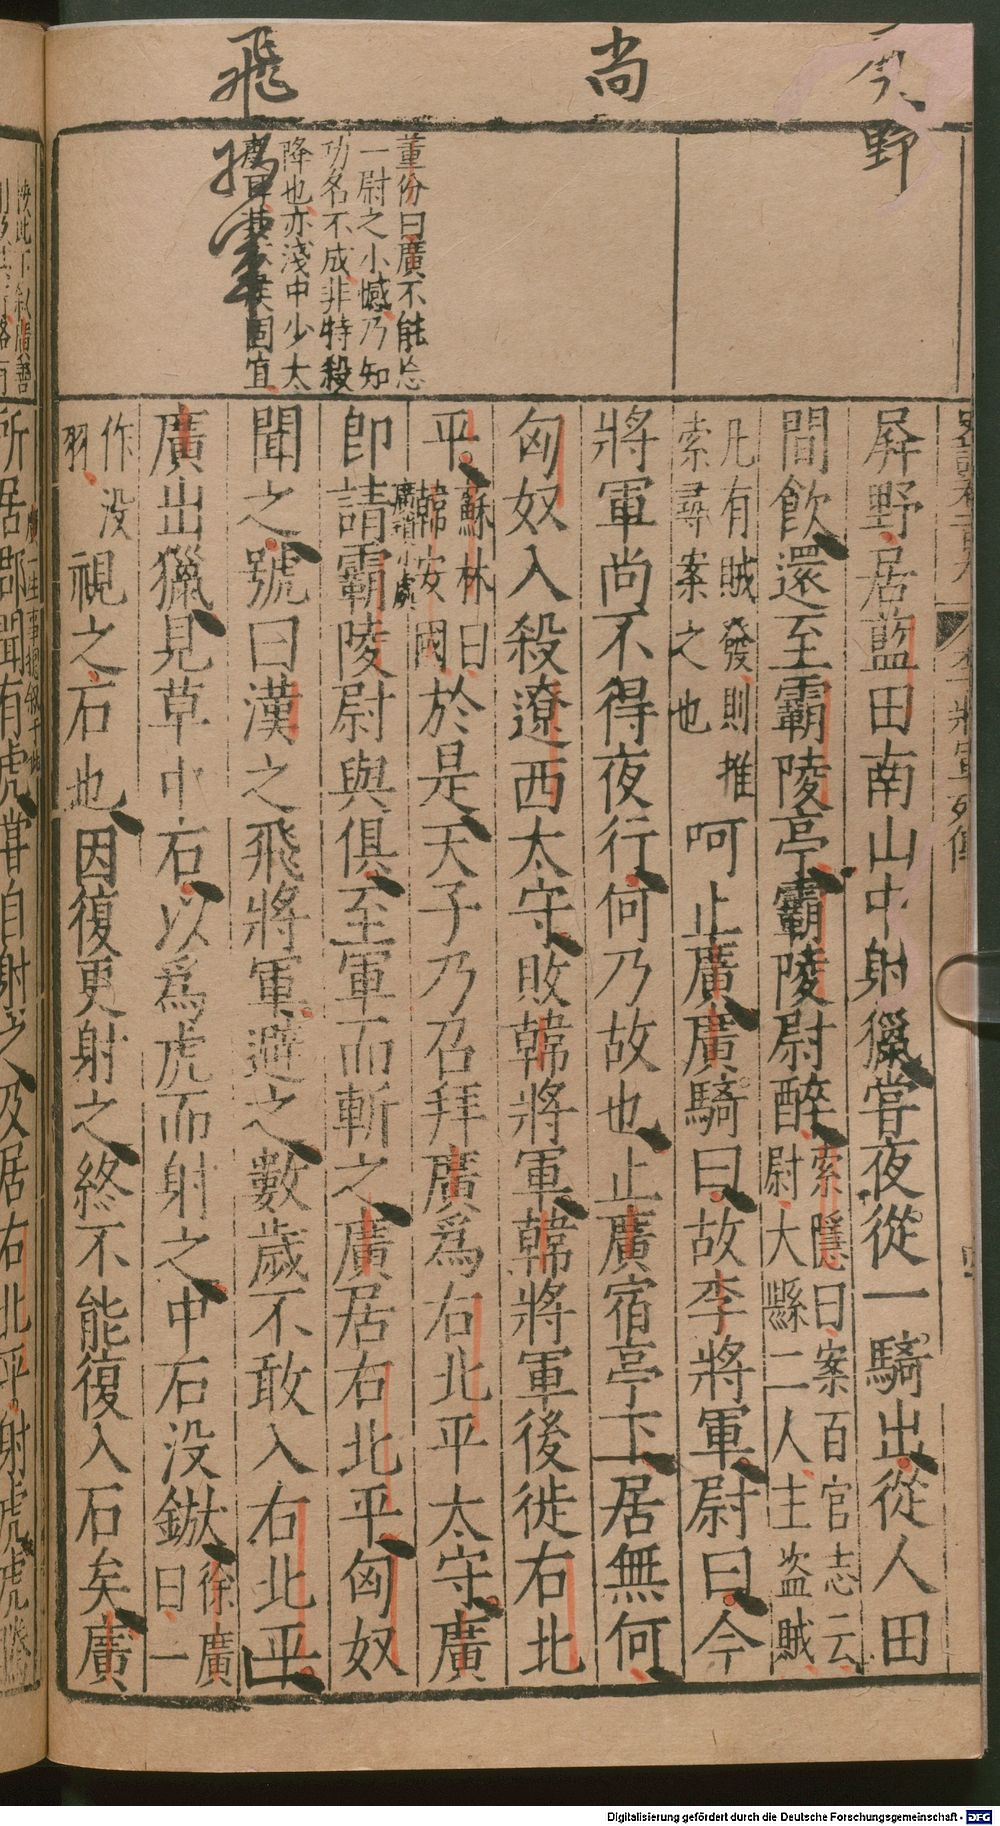 野
尚
飛
將軍
董份曰廣不能忘
一尉之小憾乃知
功名不成非特殺
降也亦淺中少太
固宜
屏野居藍田南山中射獵嘗夜從一騎出從人田
間飲還至霸陵亭霸陵尉醉索隱曰案百官志云
尉大縣二人主盗賊
凡有賊發則推
索尋案之也呵止廣廣騎曰故李將軍尉曰今
將軍尚不得夜行何乃故也止廣宿亭下居無何
匈奴入殺遼西太守敗韓將軍韓將軍後徙右北
平蘇林曰
韓安國於是天子乃召拜廣爲右北平太守廣
即請霸陵尉與俱至軍而斬之廣居右北平匈奴
聞之號曰漢之飛將軍避之數歲不敢入右北平
廣出獵見草中石以爲虎而射之中石没鏃徐廣
曰一
作没
羽視之石也因復更射之終不能復入石矣廣
所居郡聞有虎嘗自射之及居右北平射虎虎騰
Digitalisierung gefördert durch die Deutsche Forschungsgemeinschaft - DFG